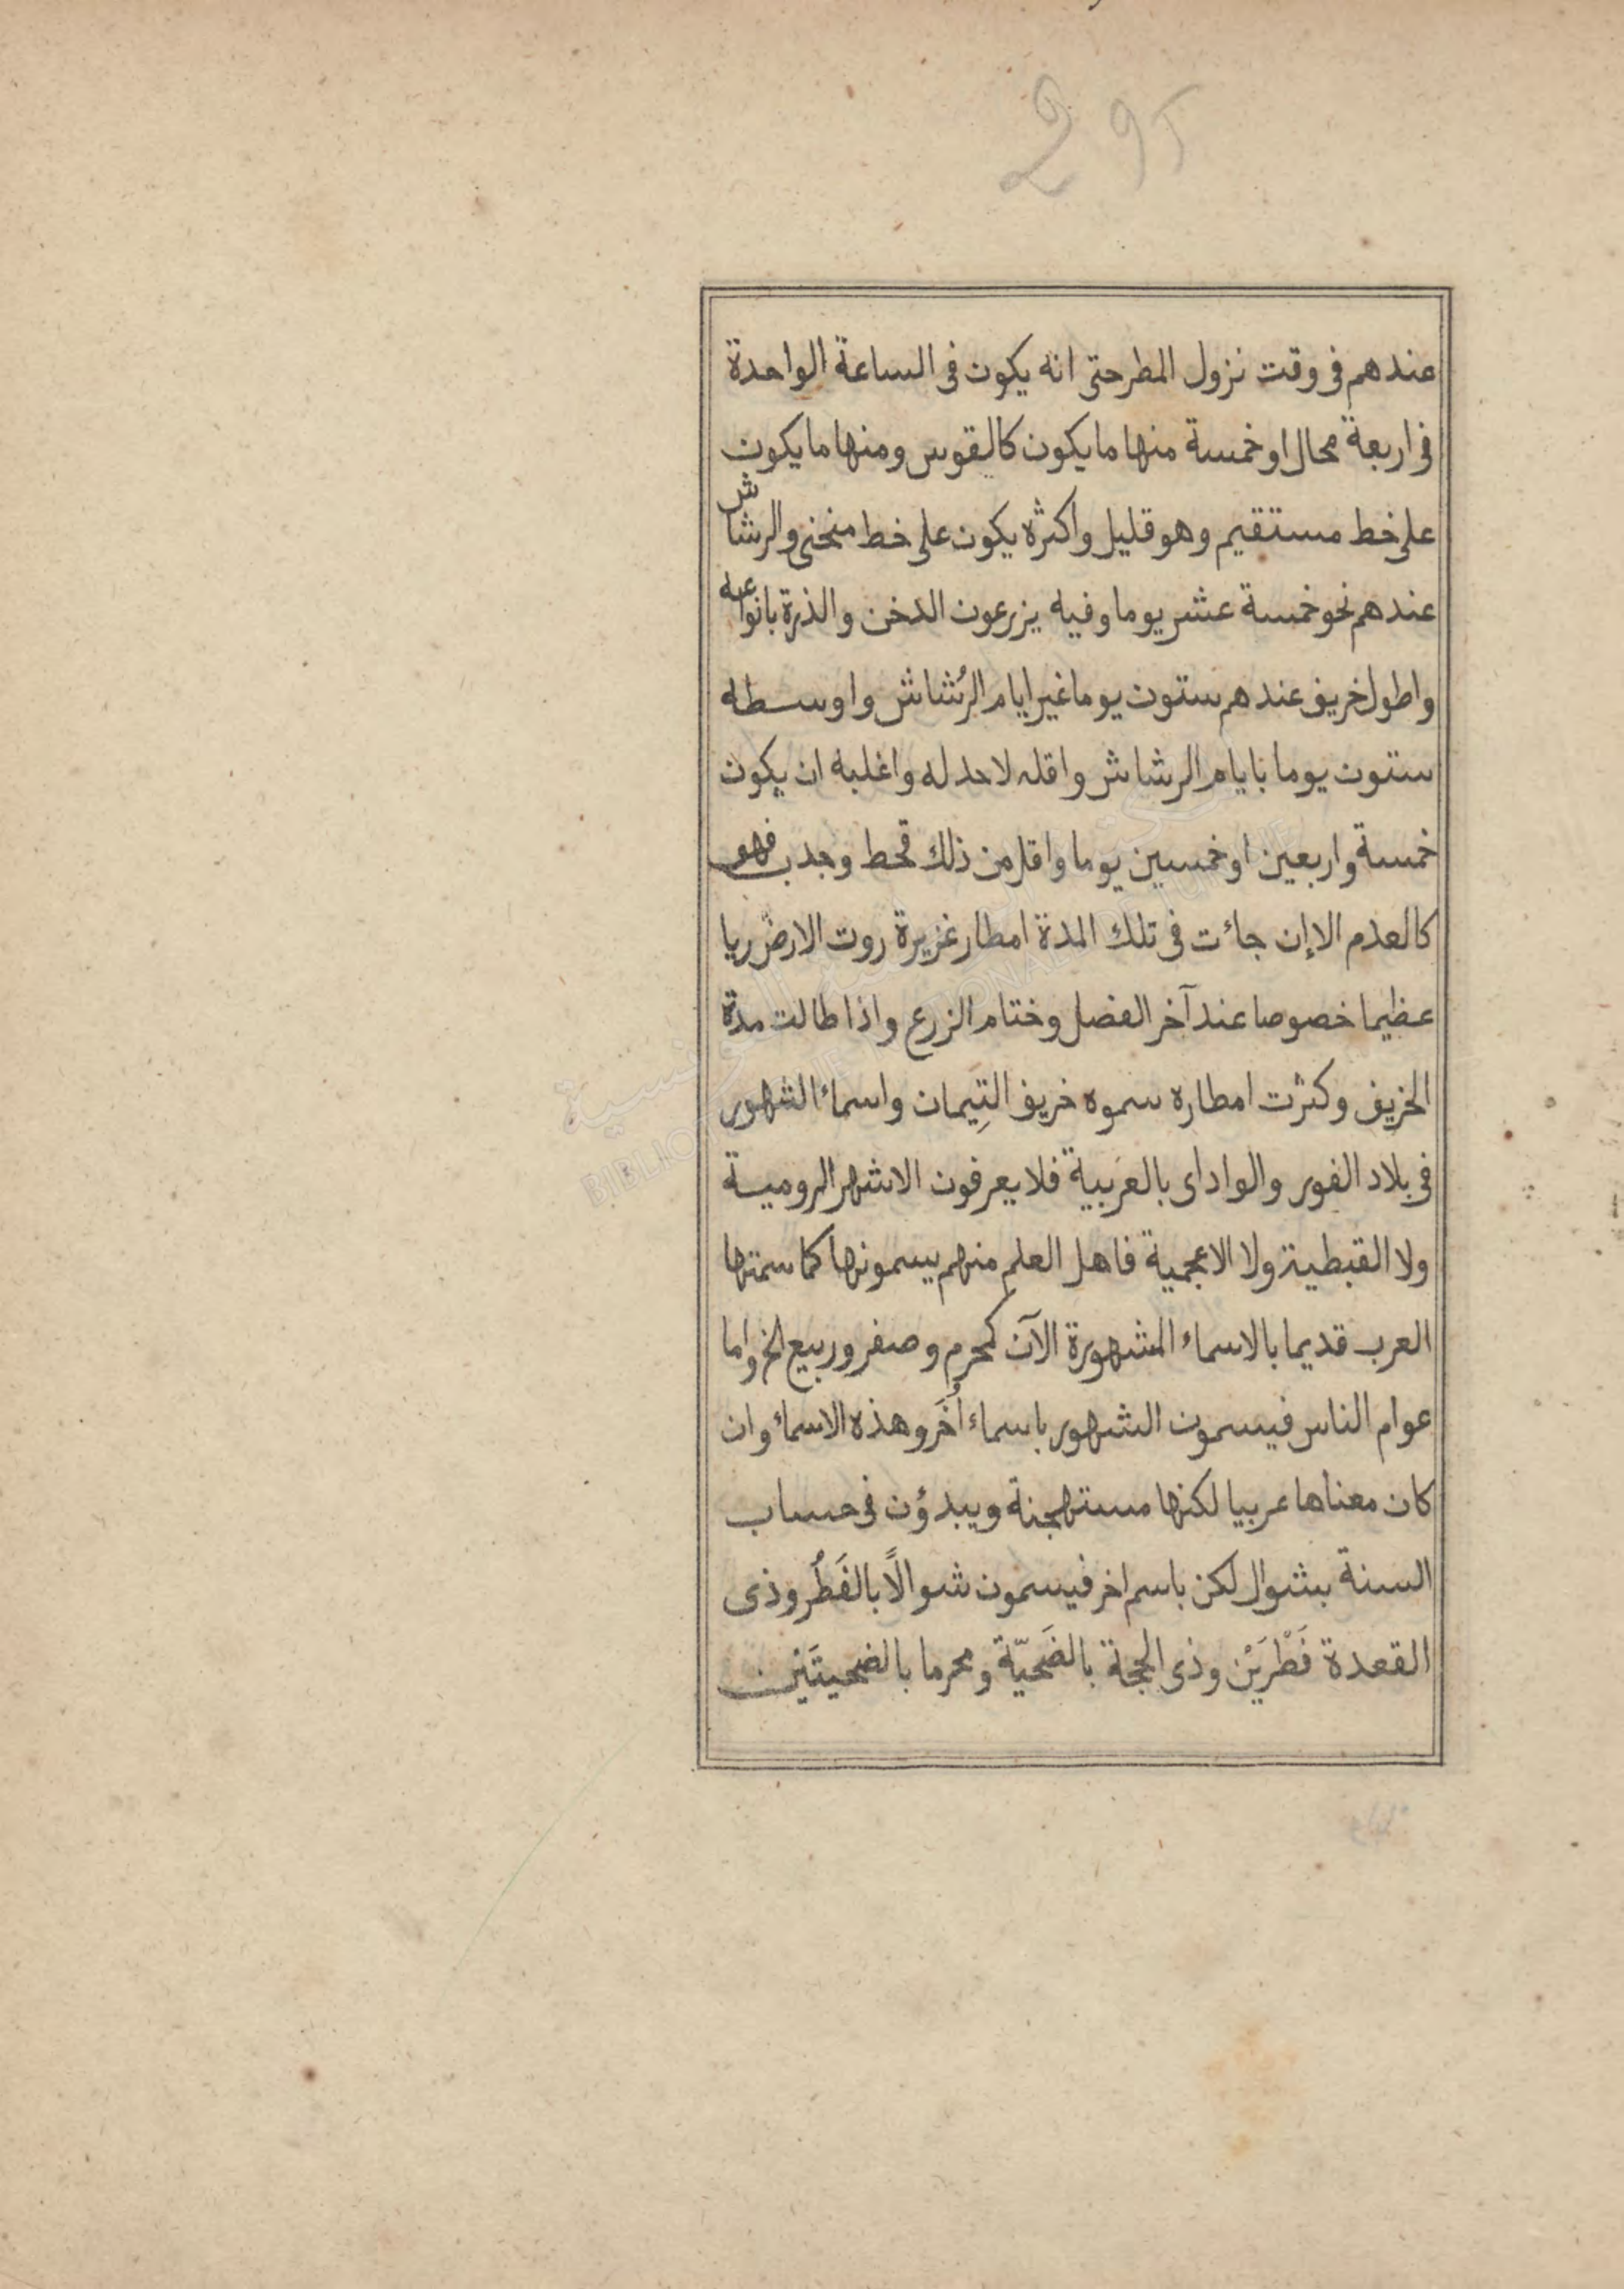 295
عندهم فى وقت نزول المطر حتى انه يكون فى الساعة الواحدة
فى اربعة محال او خمسة منها ما يكون كالقوس ومنها ما يكون
على خط مستقيم وهو قليل واكثره يكون على خط منحنى والرشاش
عندهم نحو خمسة عشر يوما وفيه يزرعون الدخن والذرة بانواعه
واطول خريف عندهم ستون يوما غير ايام الرُشاش واوسطه
ستون يوما بايام الرشاش واقله لا حد له واغلبه ان يكون
خمسة واربعين او خمسين يوما واقل من ذلك قحط وجدب فهو
كالعدم الا إن جاءت فى تلك المدة امطار غزيرة روت الارض ريا
عظيما خصوصا عند آخر الفصل وختام الزرع واذا طالت مدة
الخريف وكثرت امطاره سموه خريف التِيمان واسماء الشهور
فى بلاد الفور والواداى بالعَربية فلا يعرفون الاشهر الرومية
ولا القبطية ولا الاعجمية فاهل العلم منهم يسمونها كما سمتها
العرب قديما بالاسماء المشهورة الآن كمحرم وصفر وربيع الخ واما
عوام الناس فيسمون الشهور باسماء أُخَر وهذه الاسماء وان
كان معناها عربيا لكنها مستهجنة ويبدؤن فى حساب
السنة بشوال لكن باسم اخر فيسمون شوالاً بالفَطُر وذى
القعدة فَطْرَيْن وذى الحجة بالضَحيّة ومحرما بالضحيتَين
المكتبة الوطنية التونسية
BIBLIOTHEQUE NATIONALE DE TUNISIE